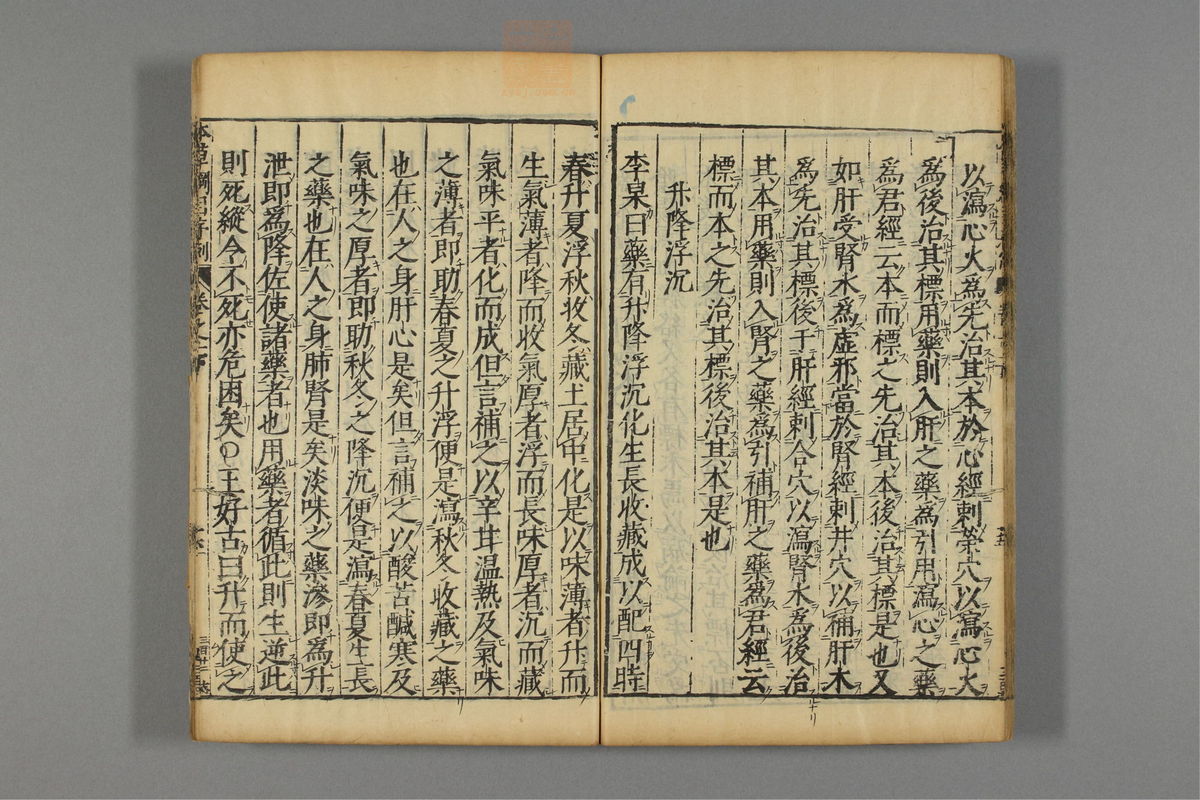 以瀉心火爲先治其本於心經刺滎穴以瀉心火
爲後治其標用藥則入肝之藥爲引用瀉心之藥
爲君經云本而標之先治其本後治其標是也又
如肝受腎水爲虛邪當於腎經刺井穴以補肝木
爲先治其標後于肝經刺合穴以瀉腎水爲後治
其本用藥則入腎之藥爲引補肝之藥爲君經云
標而本之先治其標後治其本是也
升降浮沉
李杲曰藥有升降浮沉化生長收藏成以配四時
春升夏浮秋收冬藏土居中化是以味薄者升而
生氣薄者降而收氣厚者浮而長味厚者沉而藏
氣味平者化而成但言補之以辛甘温熱及氣味
之薄者即助春夏之升浮便是瀉秋冬收藏之藥
也在人之身肝心是矣但言補之以酸苦鹹寒及
氣味之厚者即助秋冬之降沉便是瀉春夏生長
之藥也在人之身肺腎是矣淡味之藥滲即爲升
泄即爲降佐使諸藥者也用藥者循此則生逆此
則死縱令不死亦危困矣〇王好古曰升而使之